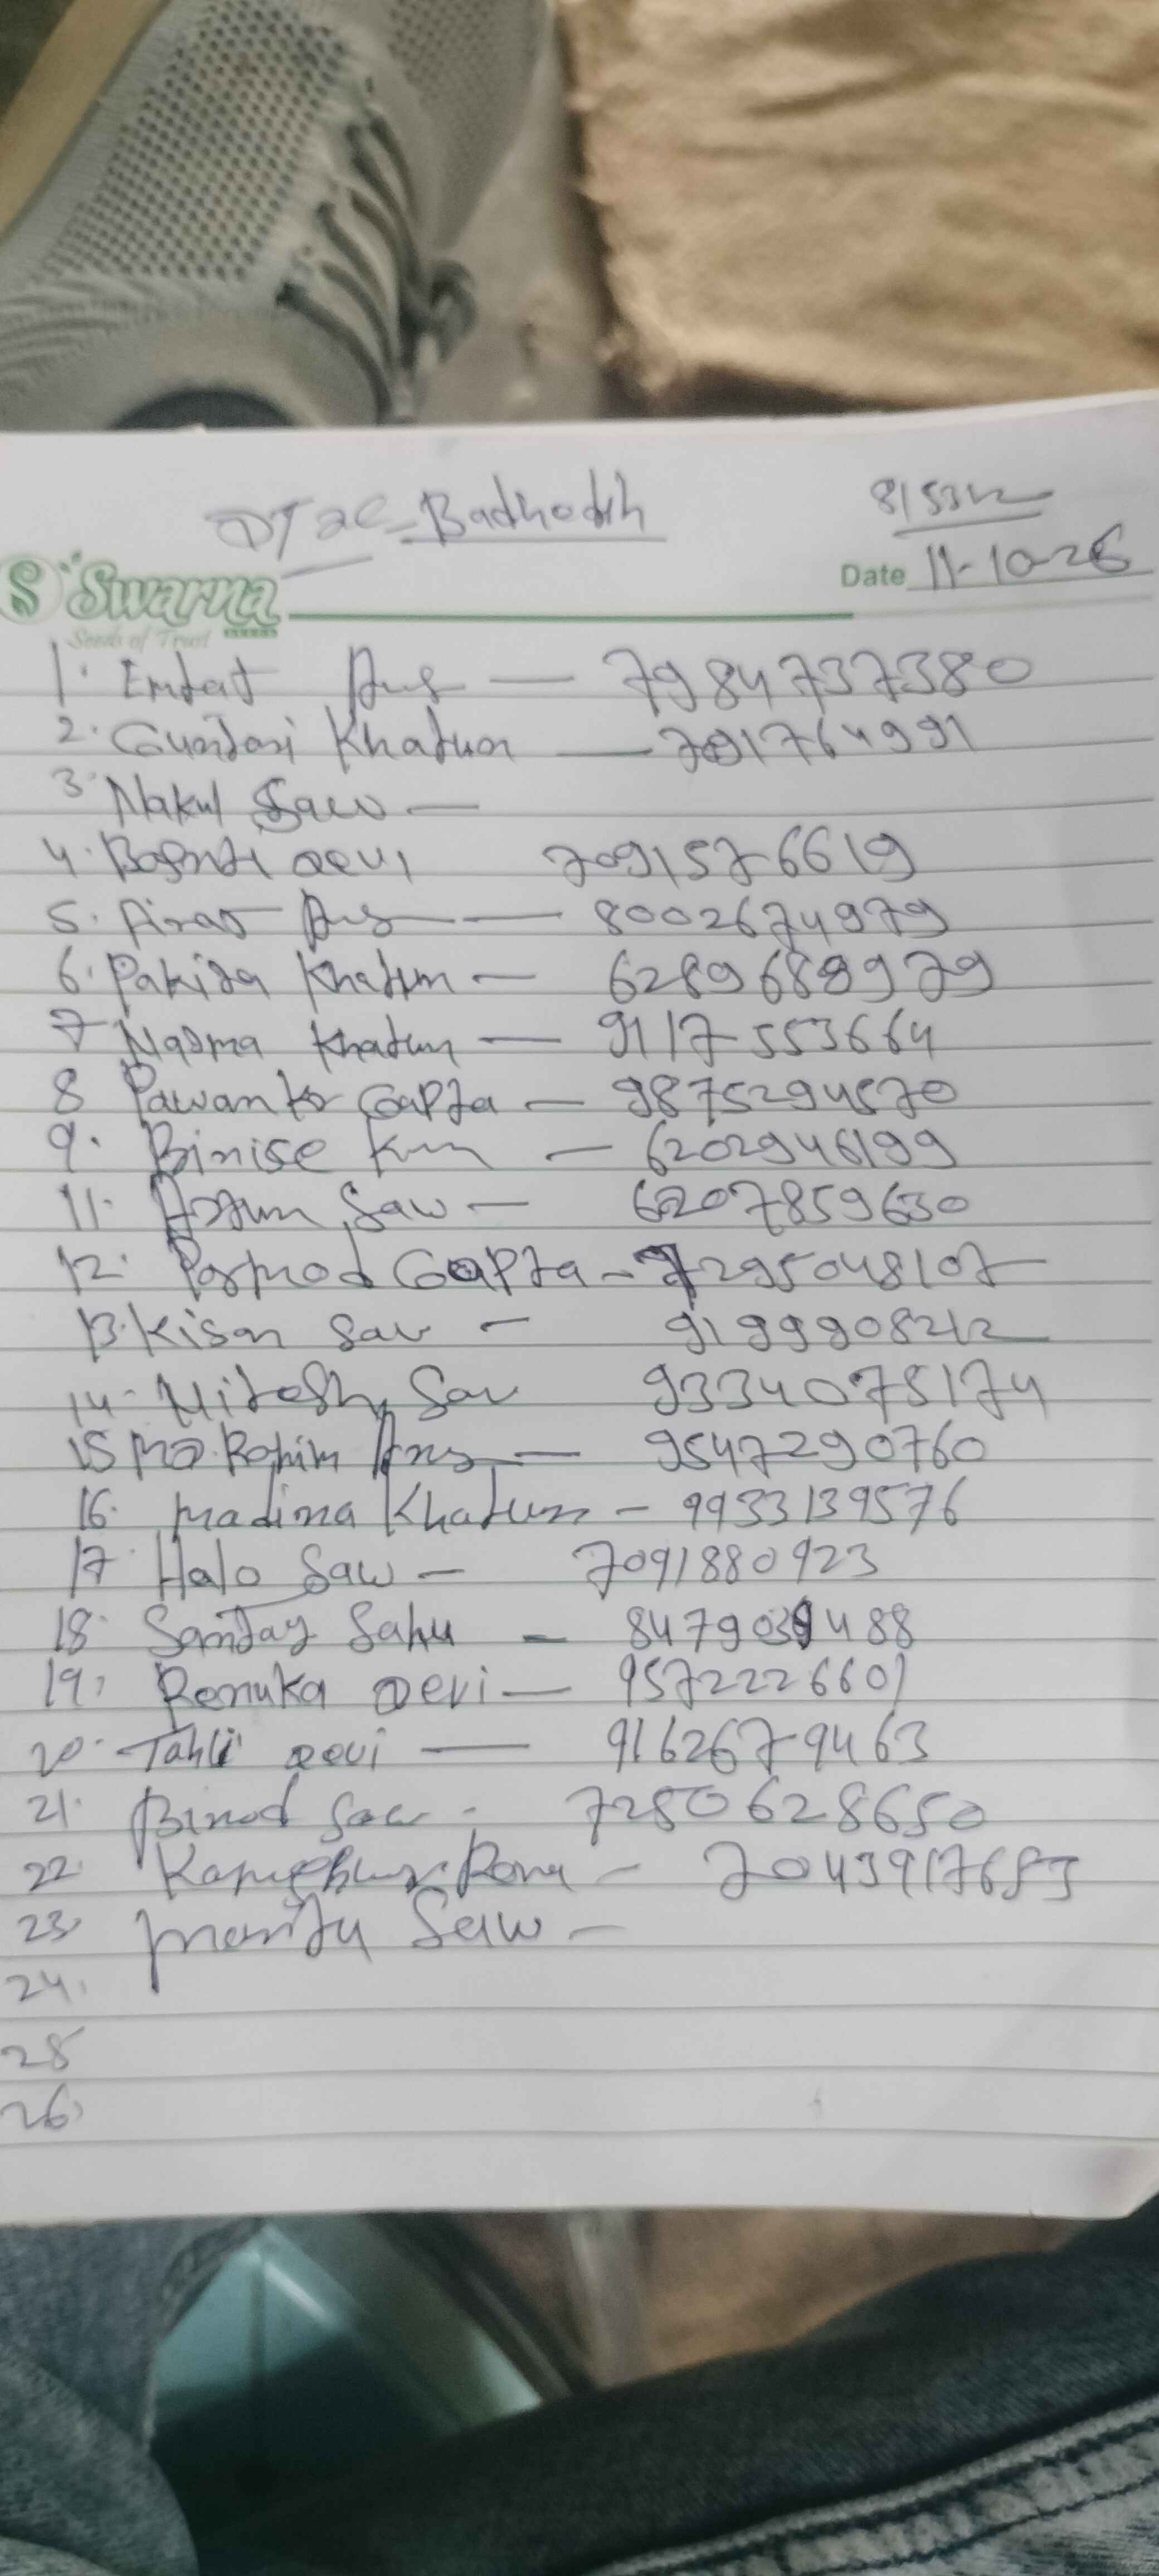 Badhodih
Swarna
Seeds of Trust
Date 11-10-26
1. Ans — 7984737380
2. Guntari Khatun — 7091764991
3. Nakul Saw —
4. Devi 7091576619
5. Ans — 8002674979
6. Pakiza Khatun — 6289688979
7 Nasma Khatun — 9117553664
8 Pawan kr Gapta — 9875294570
9. Binise Km — 6202946199
11. Arjun Saw — 6207859630
12. Pormod Gapta - 7295048107
13. Kison Sav — 9199908212
14. Nitesh Sav 9334075174
15 MD. Rohim Ans — 9547290760
16. madina Khatun - 9933139576
17. Halo Saw — 7091880923
18. Sanjay Sahu - 488
19. Renuka Devi — 9572226601
20. Tahli Devi — 9162679463
21. Binod Saw - 7280628650
22. Rana - 7043917683
23. Saw -
24.
25
26.